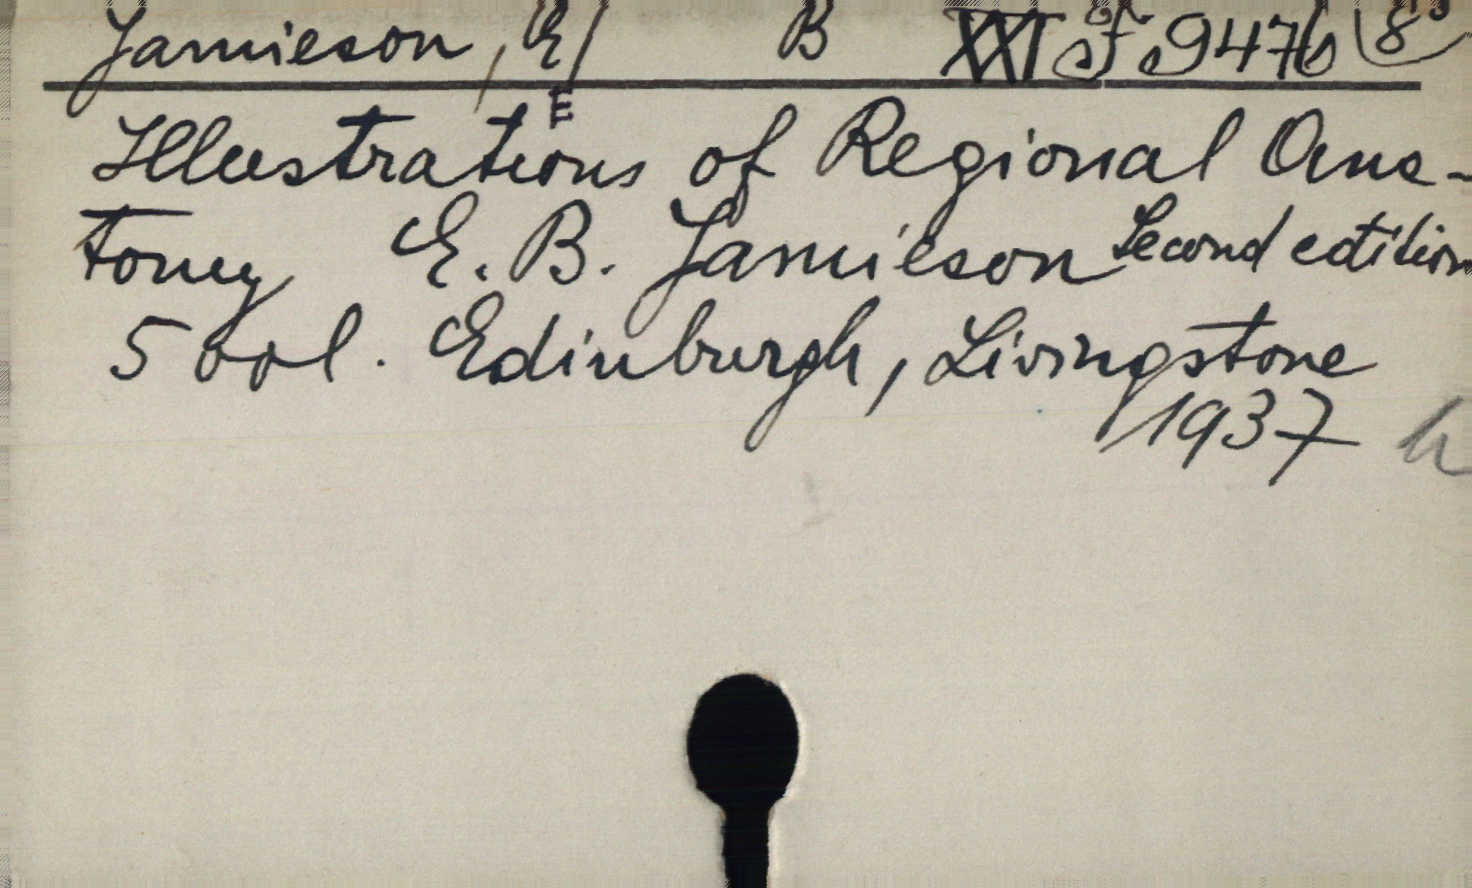 Jamieson, E/ B XXI F 9476 8°
E
Illustrations of Regional Ana-
tomy E. B. Jamieson Second edition
5 vol. Edinburgh, Livingstone
1937 h